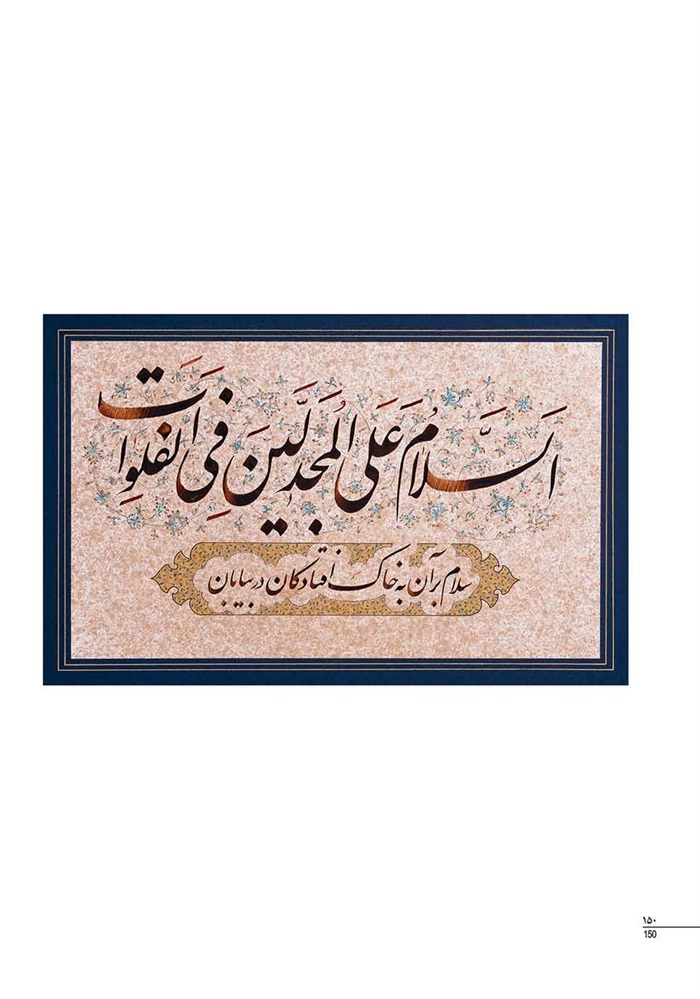 اَلسَّلامُ عَلَی المُجَدَّلینَ فِی الفَلَواتِ
سلام بر آن به خاک افتادگان در بیابان
۱۵۰
150